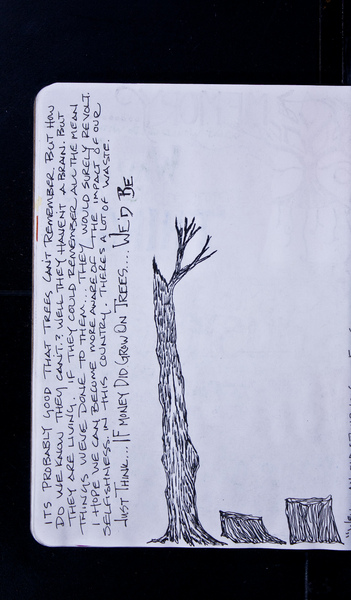 ITS PROBABLY GOOD THAT TREES CAN'T REMEMBER. BUT HOW
DO WE KNOW THEY CAN'T? WELL THEY HAVEN'T A BRAIN. BUT
THEY ARE LIVING. IF THEY COULD REMEMBER ALL THE MEAN
THINGS WE'VE DONE TO THEM... THEY WOULD SURELY REVOLT.
I HOPE WE CAN BECOME MORE AWARE OF THE IMPACT OF OUR
SELFISHNESS. IN THIS COUNTRY. THERE'S A LOT OF WASTE.
JUST THINK.... IF MONEY DID GROW ON TREES.... WE'D BE